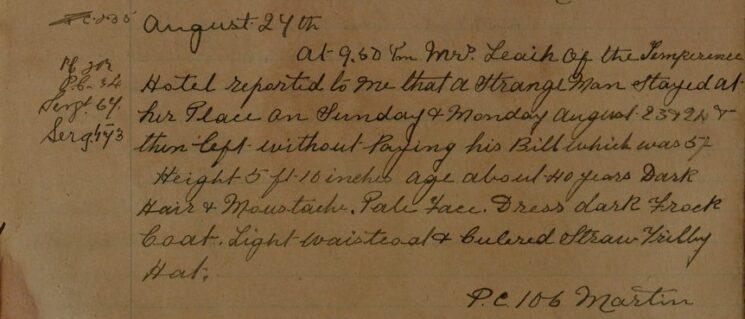 August 27th
At 9.50 Pm Mrs. Leaih Of the Temperence
Hotel reported to me that a Strange Man Stayed at
her Place on Sunday & Monday August 23 & 24 &
then left without Paying his Bill which was 5/
Height 5 ft 10 inches age about 40 years Dark
Hair & Moustache. Pale Face. Dress dark Frock
Coat. Light waistcoat & Culered Straw Trilby
Hat.
P.C. 106 Martin
P.C. 34
Sergt 64
Sergt 173